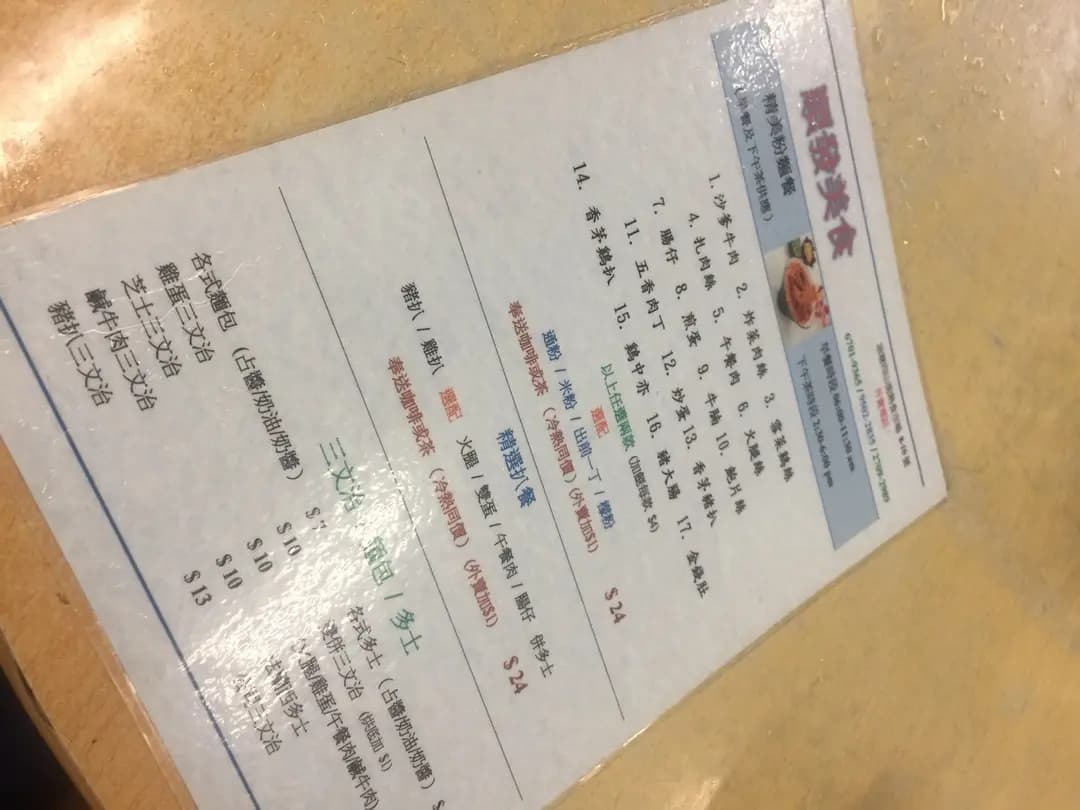 發美食
精美粉麵餐
(早餐及下午茶供應)
早餐時段 06:00-11:30 am
下午茶時段 2:30-6:00 pm
1. 沙爹牛肉 2. 炸菜肉絲 3. 雪菜雞絲
4. 扎肉絲 5. 午餐肉 6. 火腿絲
7. 腸仔 8. 煎蛋 9. 牛腩 10. 鮑片絲
11. 五香肉丁 12. 炒蛋 13. 香茅豬扒
14. 香茅鷄扒 15. 鷄中亦 16. 豬大腸 17. 金錢肚
以上任選兩款 (加餸每款 $4)
選配
通粉 / 米粉 / 出前一丁 / 檬粉
奉送咖啡或茶 (冷熱同價) (外賣加$1) $24
精選扒餐
豬扒 / 雞扒 選配 火腿 / 雙蛋 / 午餐肉 / 腸仔 併多士
奉送咖啡或茶 (冷熱同價) (外賣加$1) $24
三文治 / 麵包 / 多士
各式麵包 (占醬/奶油/奶醬)
雞蛋三文治 $10
芝士三文治 $10
鹹牛肉三文治 $10
豬扒三文治 $13
各式多士 (占醬/奶油/奶醬)
併三文治 (烘底加 $1)
腿/雞蛋/午餐肉/鹹牛肉)
西多士
三文治